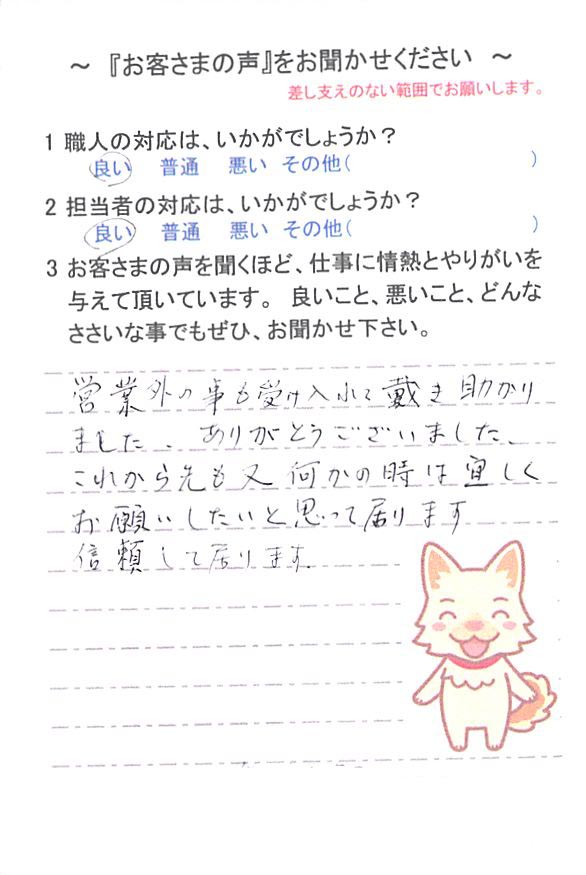 ～ 『お客さまの声』をお聞かせください ～
差し支えのない範囲でお願いします。
1 職人の対応は、いかがでしょうか？
良い 普通 悪い その他( )
2 担当者の対応は、いかがでしょうか？
良い 普通 悪い その他( )
3 お客さまの声を聞くほど、仕事に情熱とやりがいを
与えて頂いています。 良いこと、悪いこと、どんな
ささいな事でもぜひ、お聞かせ下さい。
営業外の事も受け入れて戴き助かり
ました、ありがとうございました、
これから先も又何かの時は宜しく
お願いしたいと思って居ります
信頼して居ります。